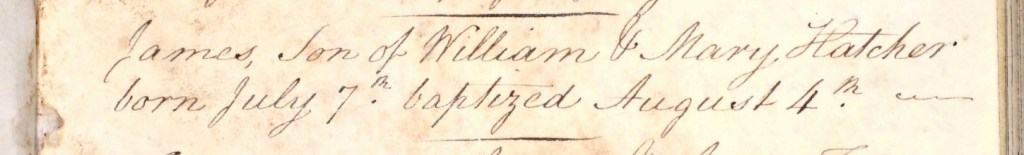 James, Son of William & Mary Hatcher
born July 7th. baptized August 4th. —